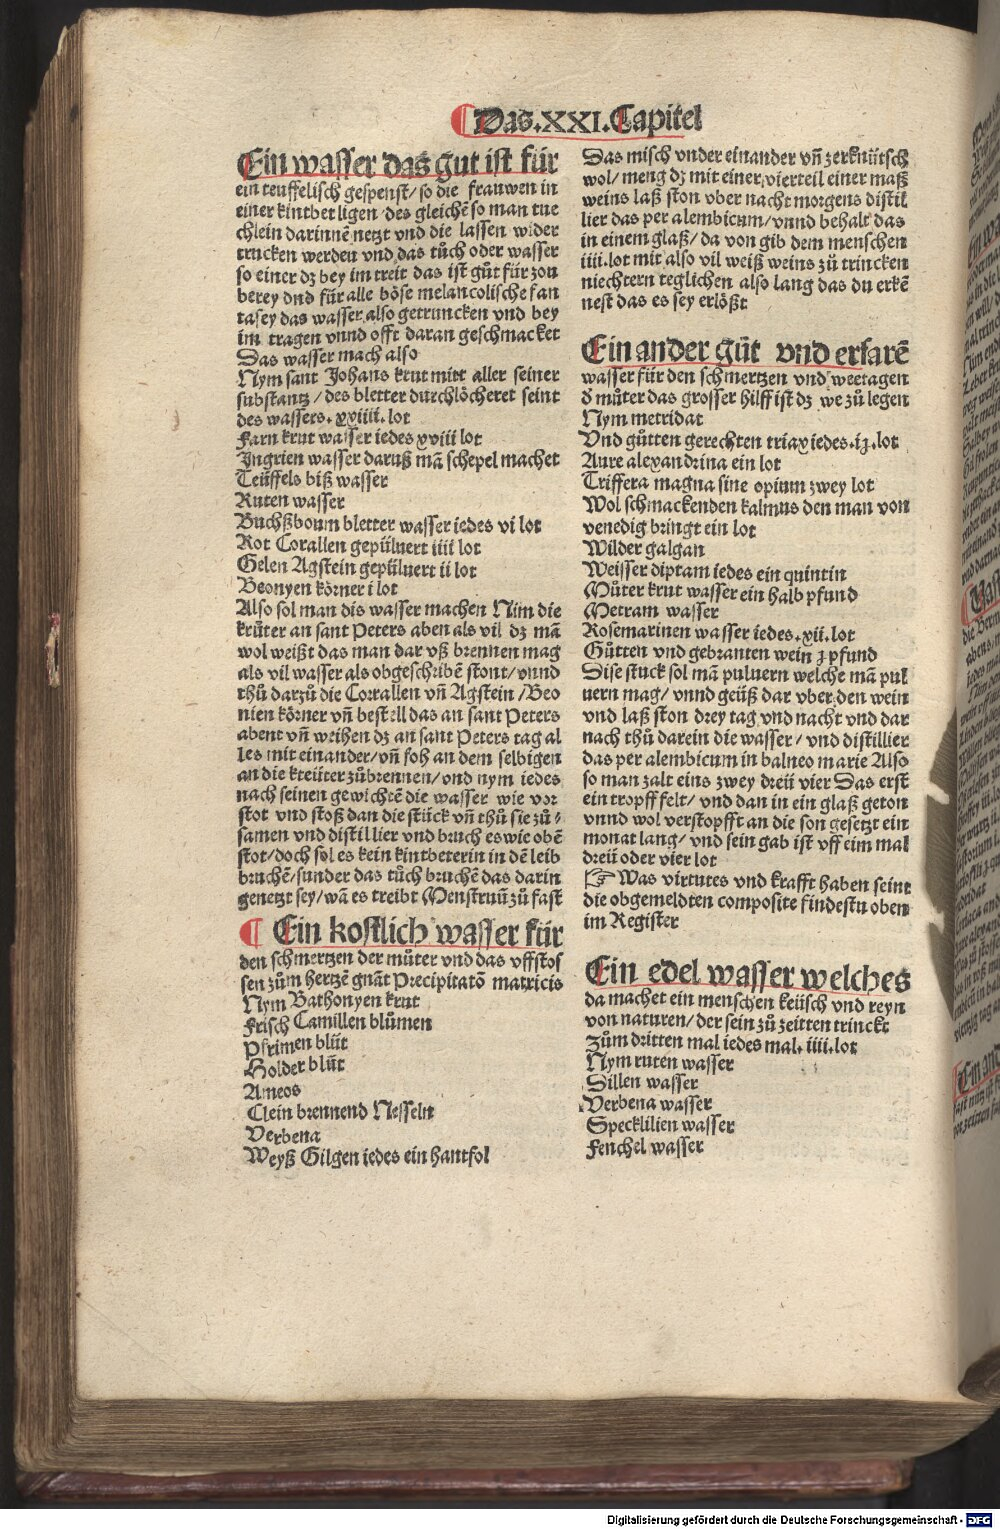 ¶ Das.XXI.Capitel
Ein wasser das gut ist für
ein teuffelisch gespenst/so die frauwen in
einer kintbet ligen/des gleichē so man tüe
chlein darinnē netzt vnd die lassen wider
trucken werden vnd das tůch oder wasser
so einer dz bey im treit das ist gůt für zou
berey vnd für alle böse melancolische fan
tasey das wasser also getruncken vnd bey
im tragen vnnd offt daran geschmacket
Das wasser mach also
Nym sant Johans krut mitt aller seiner
substantz/des bletter durchlöcheret seint
des wassers.xxiiii.lot
Farn krut wasser iedes xviii lot
Ingrien wasser daruß mā schepel machet
Teüffels biß wasser
Ruten wasser
Buchßboum bletter wasser iedes vi lot
Rot Corallen gepülüert iiii lot
Gelen Agstein gepülüert ii lot
Beonyen körner i lot
Also sol man dis wasser machen Nim die
krüter an sant Peters aben als vil dz mā
wol weißt das man dar vß brennen mag
als vil wasser als obgeschribē stont/vnnd
thů darzů die Corrallen vñ Agstein/Beo
nien körner vñ bestell das an sant Peters
abent vñ weihen dz an sant Peters tag al
les mit einander/vñ foh an dem selbigen
an die kreüter zů brennen/vnd nym iedes
nach seinen gewichtē die wasser wie vor
stot vnd stoß dan die stück vñ thů sie zů-
samen vnd distillier vnd bruch es wie obē
stot/doch sol es kein kintbeterin in dē leib
bruchē/sunder das tůch bruchē das darin
genetzt sey/wā es treibt Menstruū zů fast
¶ Ein kostlich wasser für
den schmertzen der můter vnd das vffstos
sen zům hertzē gnāt Precipitatō matricis
Nym Bathonyen krut
Frisch Camillen blůmen
Pfrimen blüt
Holder blüt
Ameos
Clein brennend Nesseln
Verbena
Weyß Gilgen iedes ein hantfol
Das misch vnder einander vñ zerknütsch
wol/meng dz mit einer vierteil einer maß
weins laß ston vber nacht morgens distil
lier das per alembicum/vnnd behalt das
in einem glaß/da von gib dem menschen
iiii.lot mit also vil weiß weins zů trincken
niechtern teglichen also lang das du erkē
nest das es sey erlößt
Ein ander gůt vnd erfarē
wasser für den schmertzen vnd weetagen
d müter das grosser hilff ist dz we zů legen
Nym metridat
Vnd gůtten gerechten triax iedes.iʒ.lot
Aure alexandrina ein lot
Triffera magna sine opium zwey lot
Wol schmackenden kalmus den man von
venedig bringt ein lot
Wilder galgan
Weisser diptam iedes ein quintin
Můter krut wasser ein halb pfund
Metram wasser
Rosemarinen wasser iedes.xii.lot
Gůtten vnd gebranten wein ʒ pfund
Dise stuck sol mā puluern welche mā pul
uern mag/vnnd geüß dar vber den wein
vnd laß ston drey tag vnd nacht vnd dar
nach thů darein die wasser/vnd distillier
das per alembicum in balneo marie Also
so man zalt eins zwey dreü vier Das erst
ein tropff felt/vnd dan in ein glaß geton
vnnd wol verstopfft an die son gesetzt ein
monat lang/vnd sein gab ist vff eim mal
dreü oder vier lot
☞ Was virtutes vnd krafft haben seint
die obgemeldten composite findestu oben
im Register
Ein edel wasser welches
da machet ein menschen keüsch vnd reyn
von naturen/der sein zů zeitten trinckt
zům dritten mal iedes mal.iiii.lot
Nym ruten wasser
Dillen wasser
Verbena wasser
Specklilien wasser
Fenchel wasser
Digitalisierung gefördert durch die Deutsche Forschungsgemeinschaft - DFG